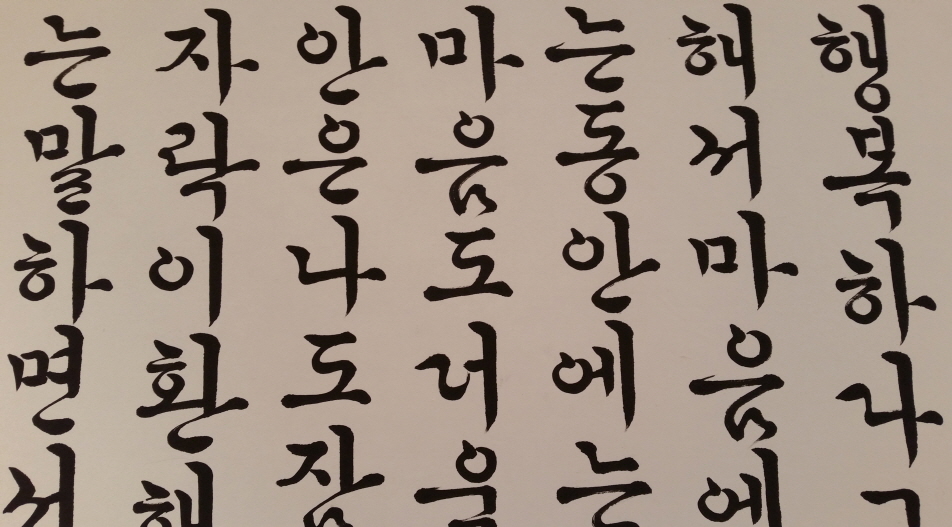 행복하나
해서마음에
는동안에는
마음도더
안은나도잠
자락이환해
는말하면서